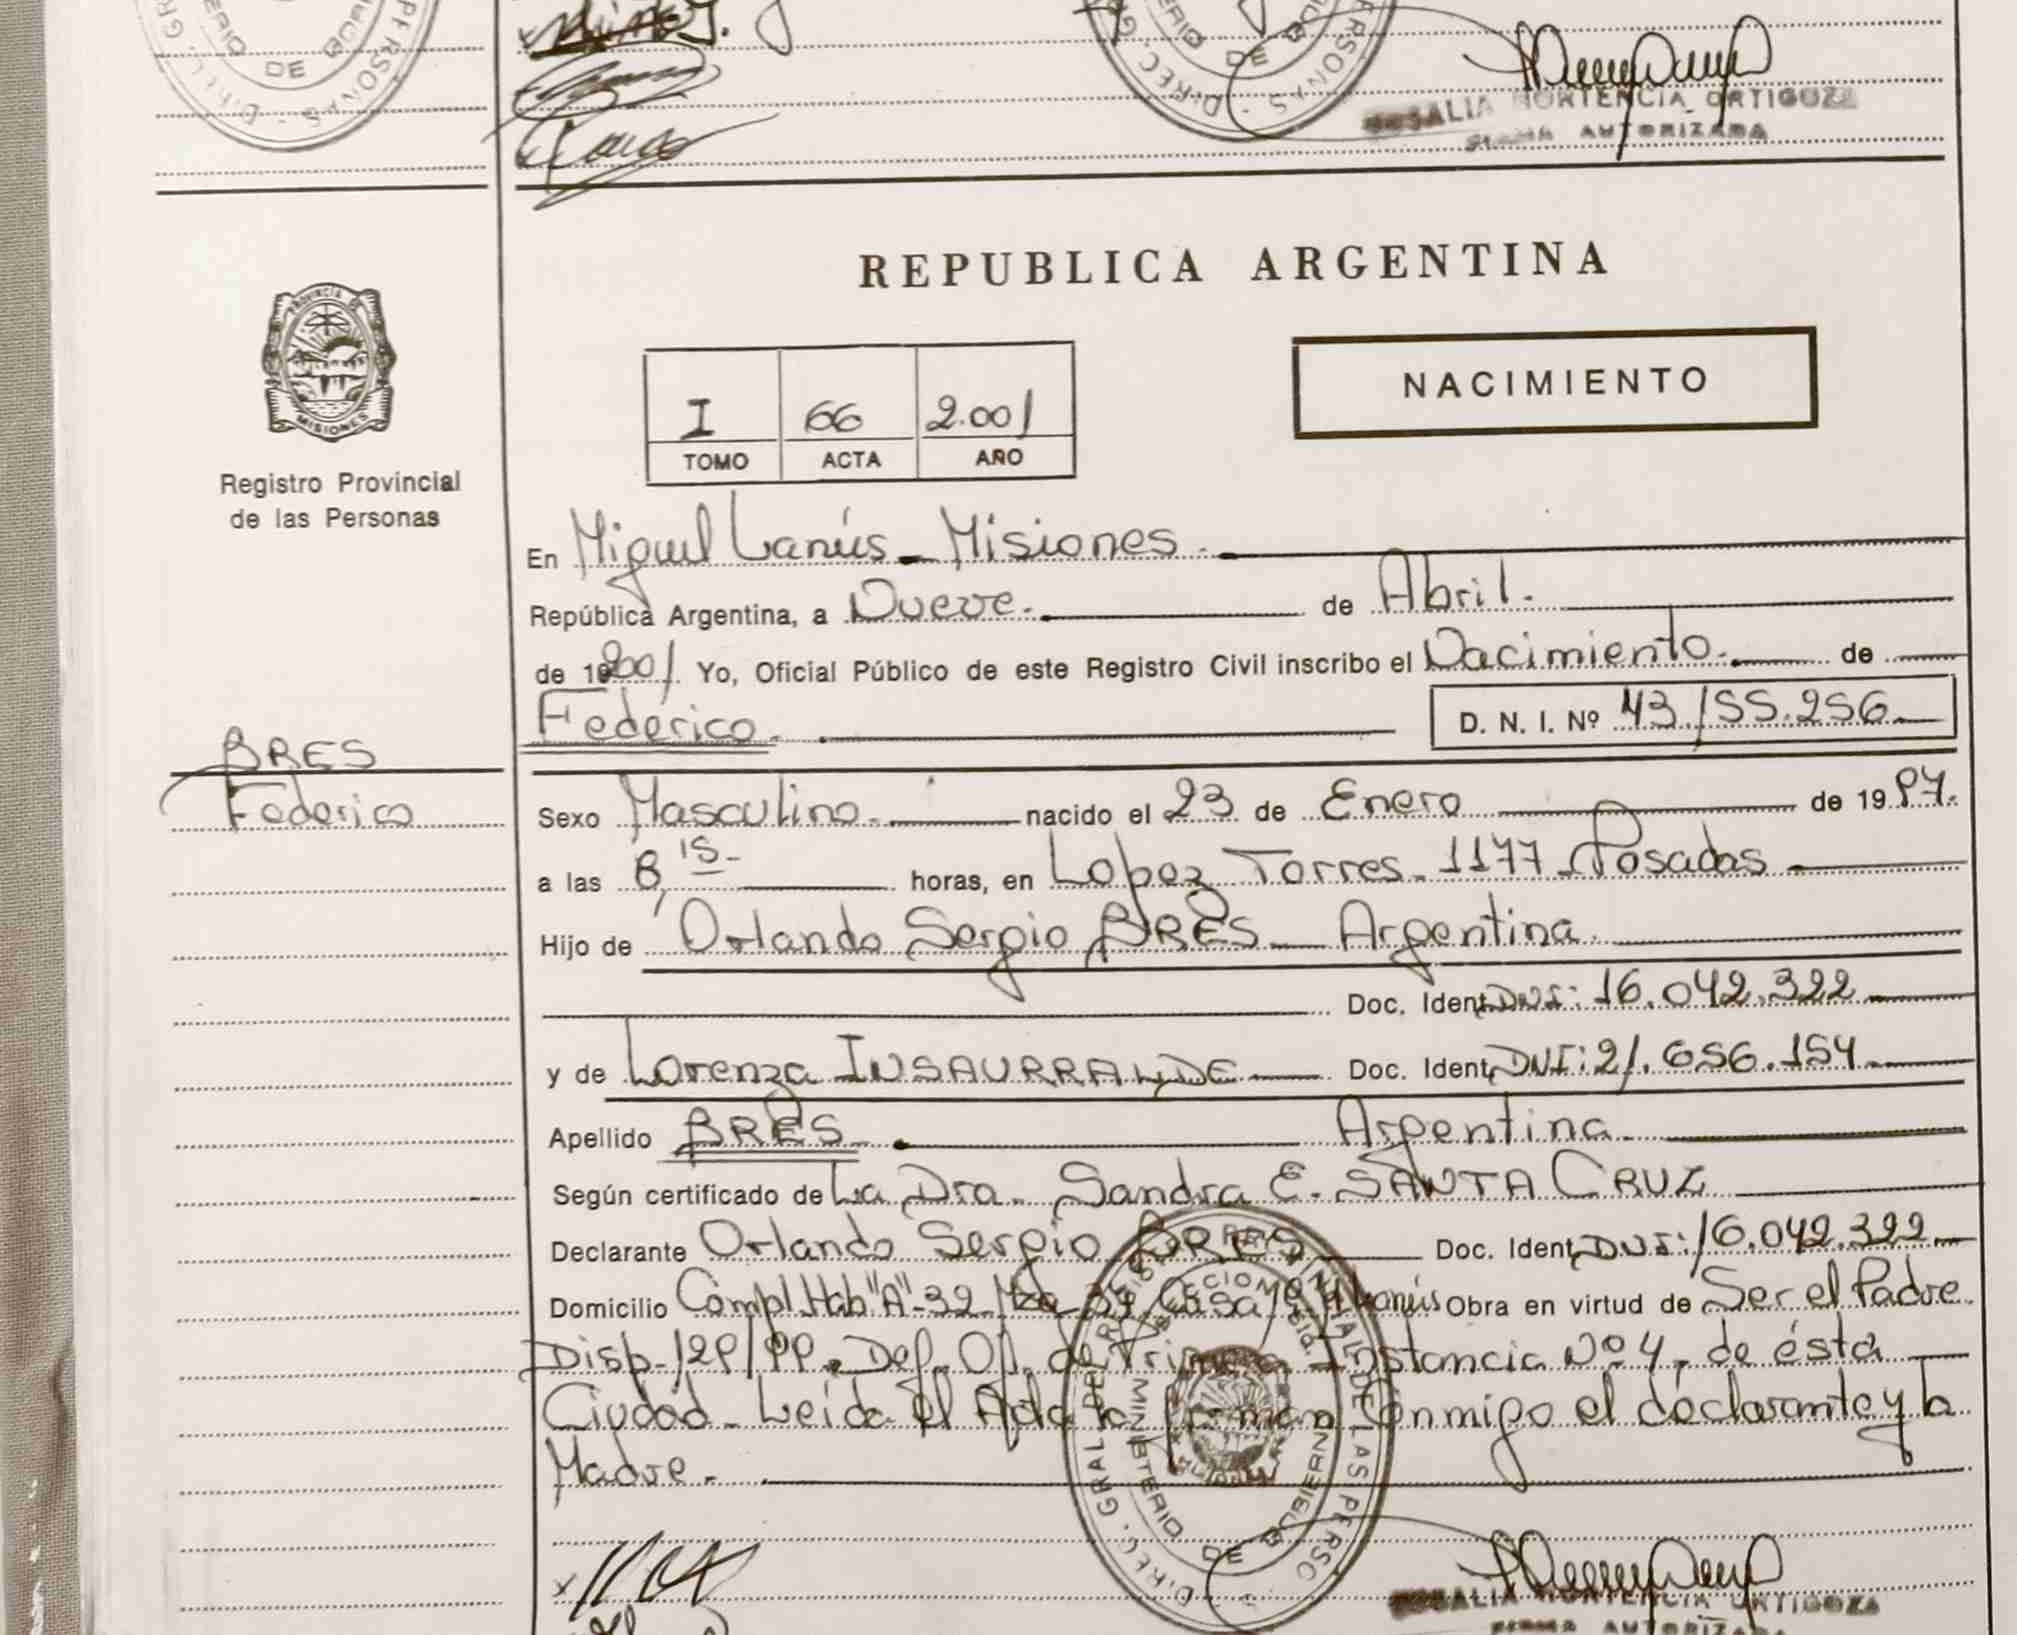 DE
ROSALIA HORTENCIA ORTIGOZA
FIRMA AUTORIZADA
REPUBLICA ARGENTINA
PROVINCIA DE
MISIONES
Registro Provincial
de las Personas
I 66 2.001
TOMO ACTA AÑO
NACIMIENTO
En Miguel Lanús - Misiones.
República Argentina, a Nueve. de Abril.
de 2001 Yo, Oficial Público de este Registro Civil inscribo el Nacimiento. de
Federico. D. N. I. Nº 43.155.256
BRES
Federico
Sexo Masculino. nacido el 23 de Enero de 1997.
a las 8,15 horas, en Lopez Torres 1177 Posadas
Hijo de Orlando Sergio BRES - Argentina.
Doc. Ident. DNI: 16.042.322
y de Lorenza INSAURRALDE Doc. Ident. DNI: 21.656.154
Apellido BRES Argentina
Según certificado de La Dra. Sandra E. SANTA CRUZ
Declarante Orlando Sergio BRES Doc. Ident. DNI: 16.042.322
Domicilio Compl. Hab "A"-32 Casa Lanús Obra en virtud de Ser el Padre.
Disp. Def. Of. de Primera Instancia Nº 4, de ésta
Ciudad - Leida el Acta la firman conmigo el declarante y la
Madre.
DIREC. GRAL DEL REGISTRO PROVINCIAL DE LAS PERSONAS
MINISTERIO DE GOBIERNO
ROSALIA HORTENCIA ORTIGOZA
FIRMA AUTORIZADA